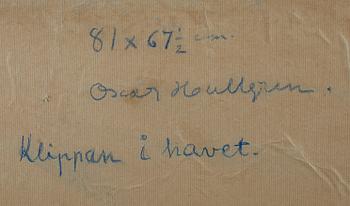 81 x 67½ cm.
Oscar Hullgren.
Klippan i havet.